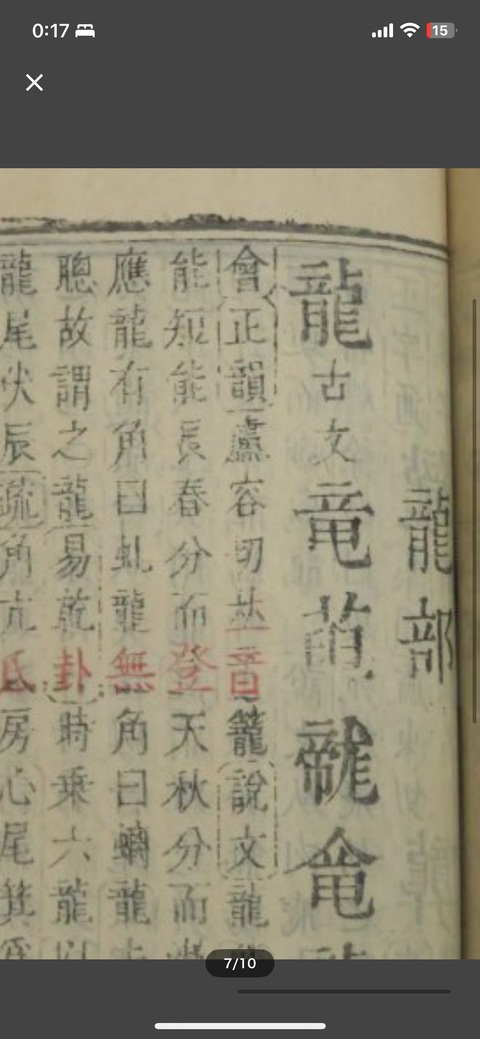 0:17
15
龍部
龍古文竜 龕
會正韻盧容切𠀤音籠說文龍
能短能長春分而登天秋分而
應龍有角曰虬龍無角曰螭龍
聰故謂之龍易乾 時乘六龍以
龍尾 辰疏角亢氐房心尾箕
7/10